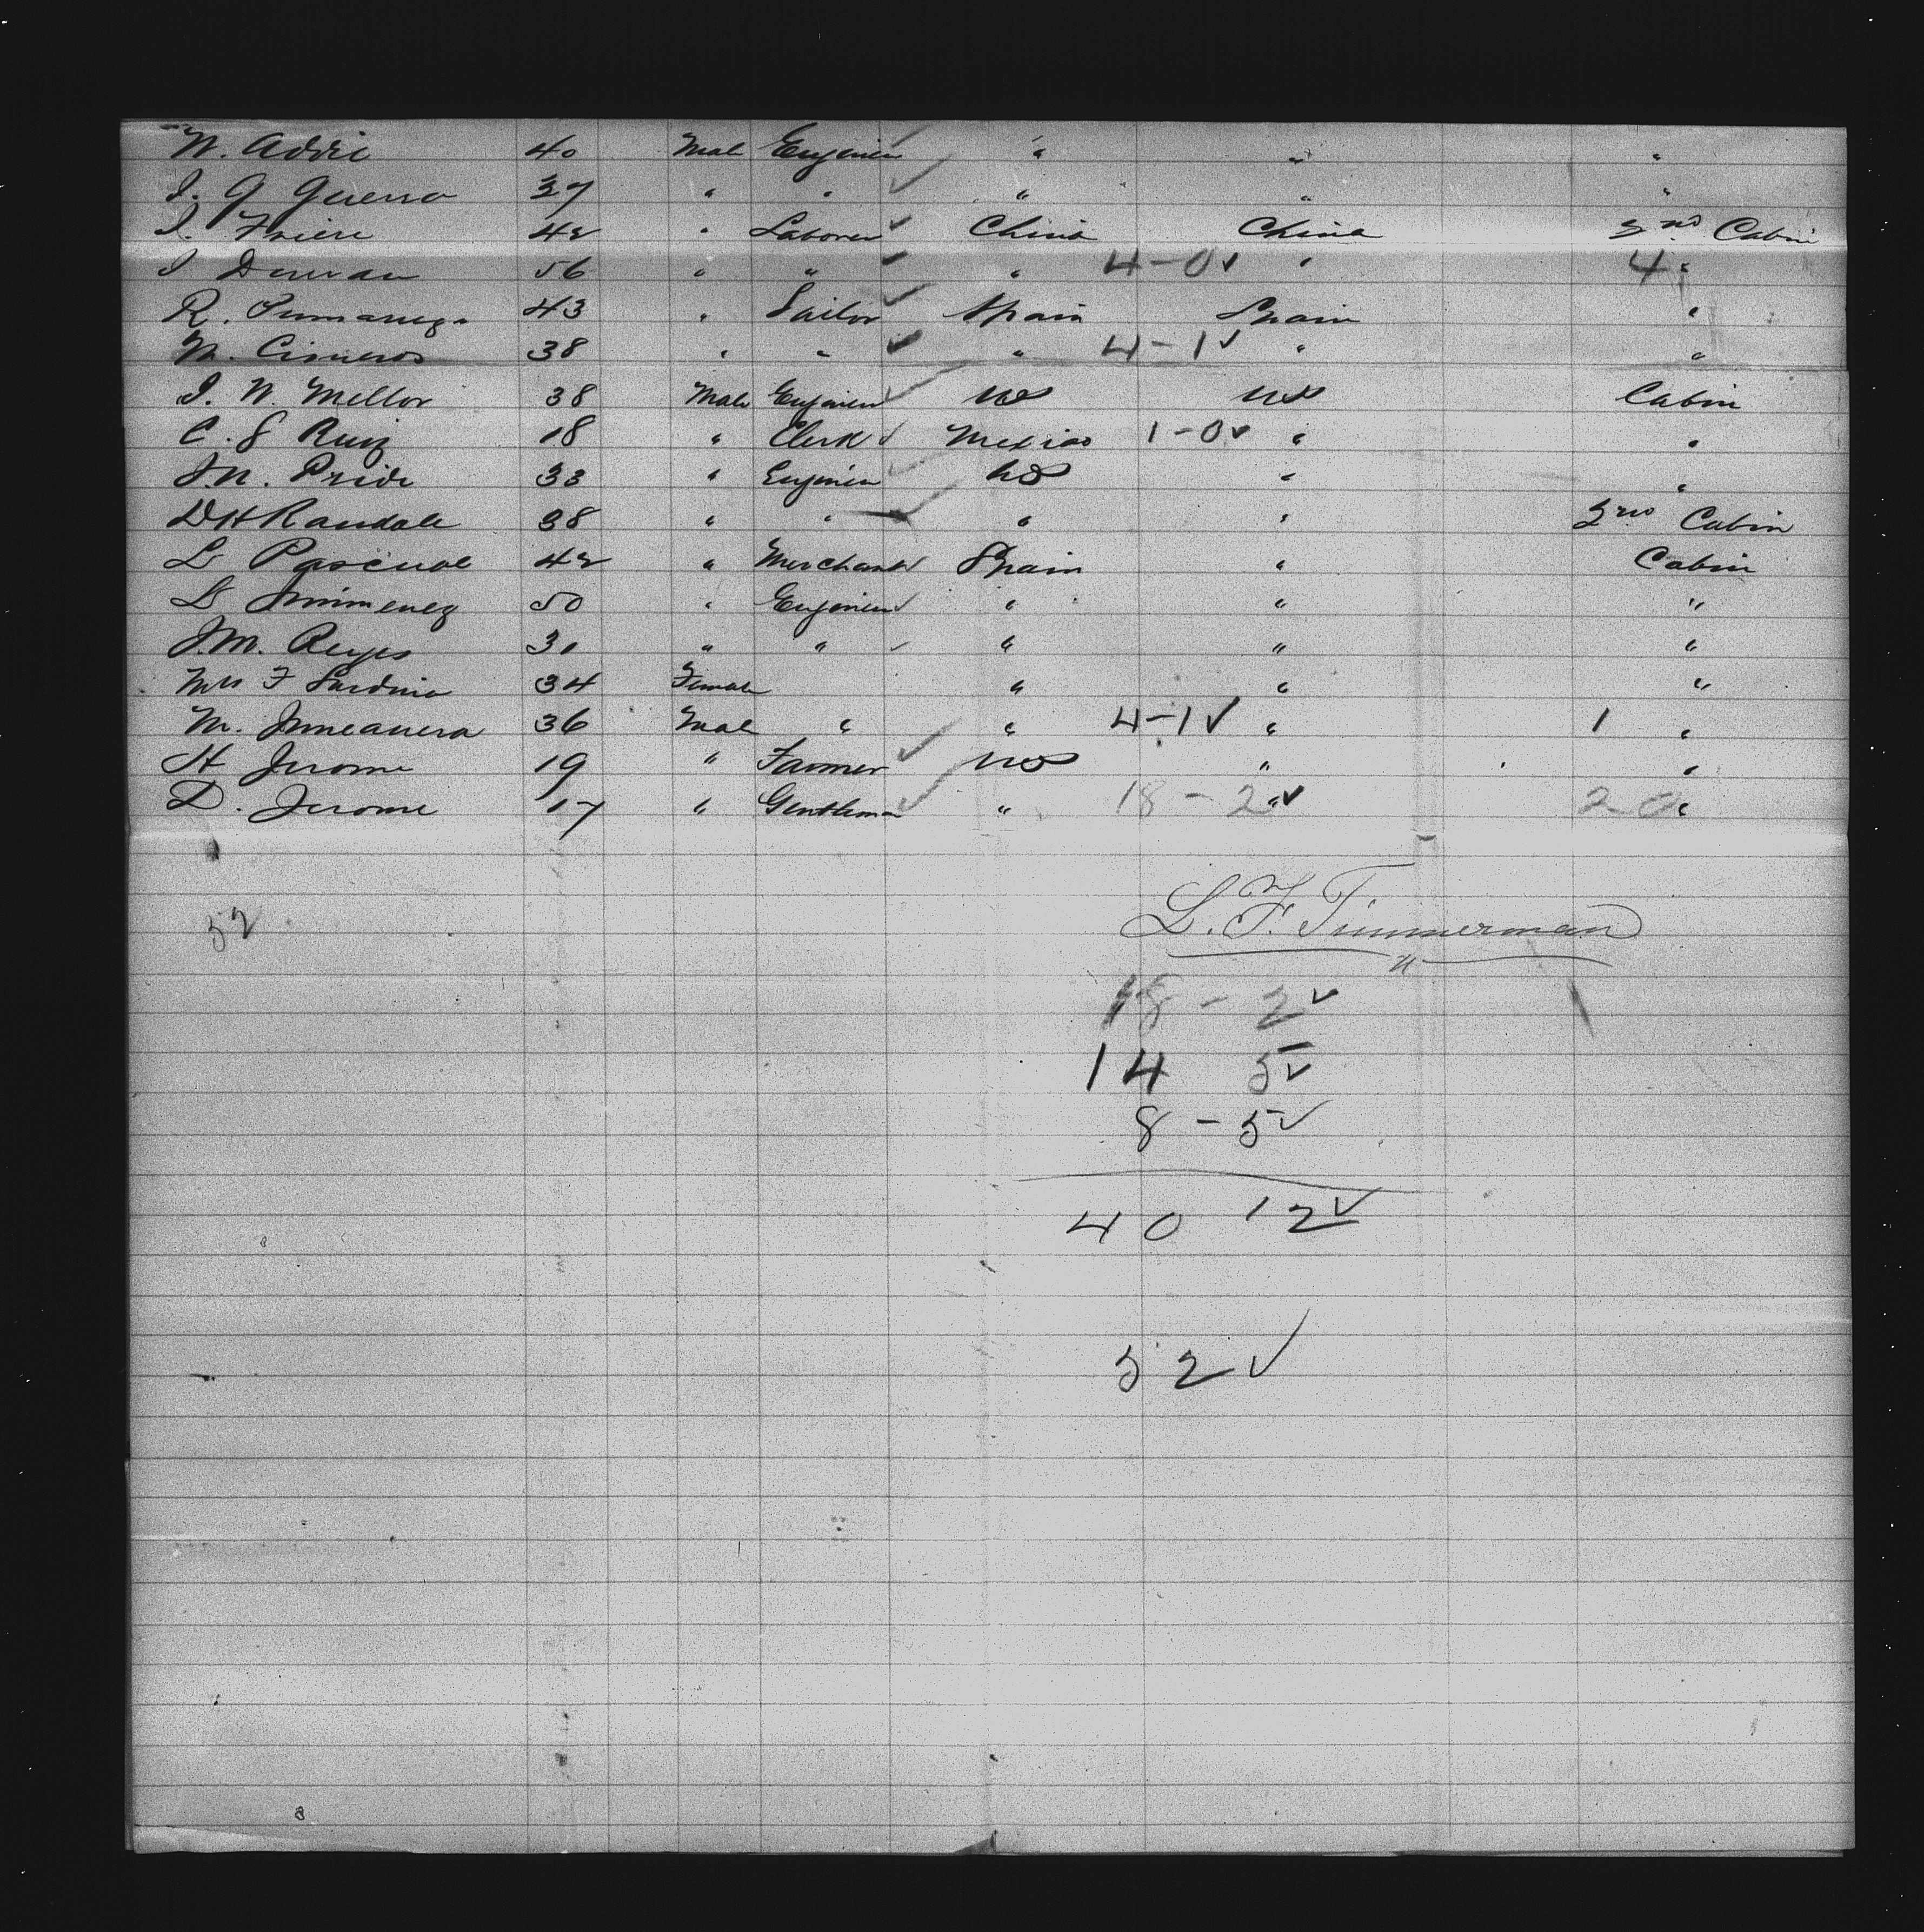 N. Addie 40 Male Engineer " " "
J. G Guerra 37 " " " " "
J. Friere 42 " Laborer China China 2nd Cabin
J Duran 56 " " " 4-0 " 4 "
R. 43 " Sailor Spain Spain "
N. Cisneros 38 " " " 4-1 " "
J. W. Mellor 38 Male Engineer US US Cabin
C. S Ruiz 18 " Clerk Mexico 1-0 " "
J.N. Pride 33 " Engineer US " "
D H Randale 38 " " " " 2nd Cabin
L Pascual 42 " Merchant Spain " Cabin
L Jimmenez 50 " Engineer " " "
J.M. Reyes 30 " " " " "
Mrs F Sardina 34 Female " " "
M. 36 Male " " 4-1 " 1 "
H Jerome 19 " Farmer US " "
D. Jerome 17 " Gentleman " 18 - 2 " 20 "
52
L. F. Timmerman
18 - 2
14 5
8 - 5
40 12
52